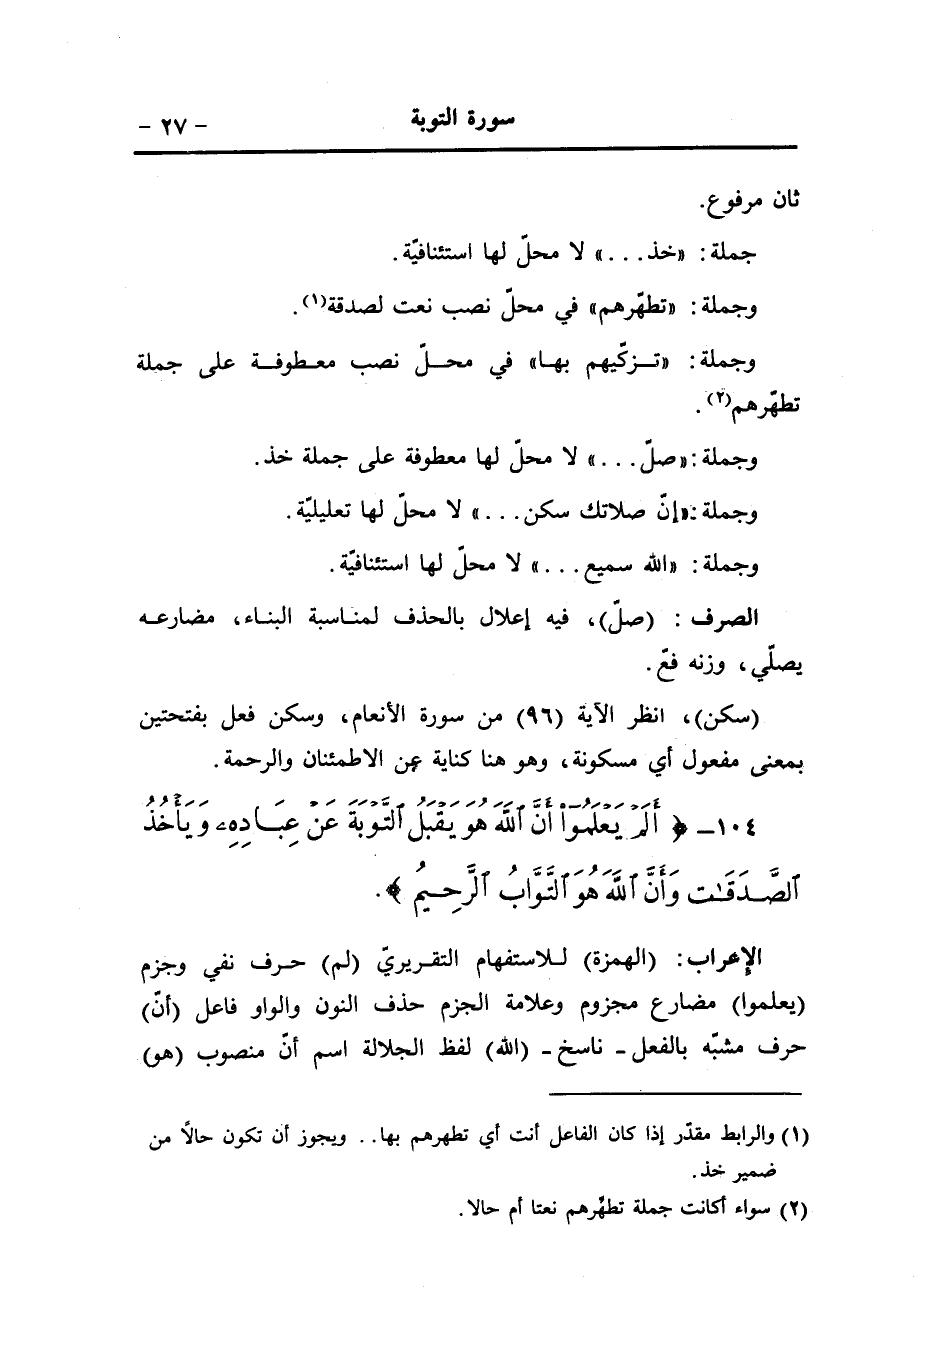 سورة التوبة - ٢٧ -
ثان مرفوع.
جملة: «خذ...» لا محلّ لها استئنافيّة.
وجملة: «تطهّرهم» في محلّ نصب نعت لصدقة(١).
وجملة: «تـزكّيهم بهـا» في محـلّ نصب معـطوفـة على جملة
تطهّرهم(٢).
وجملة:«صلّ...» لا محلّ لها معطوفة على جملة خذ.
وجملة:«إنّ صلاتك سكن...» لا محلّ لها تعليليّة.
وجملة: «الله سميع...» لا محلّ لها استئنافيّة.
الصرف: (صلّ)، فيه إعلال بالحذف لمناسبة البناء، مضارعه
يصلّي، وزنه فعّ.
(سكن)، انظر الآية (٩٦) من سورة الأنعام، وسكن فعل بفتحتين
بمعنى مفعول أي مسكونة، وهو هنا كناية عن الاطمئنان والرحمة.
١٠٤ـ ﴿ أَلَمْ يَعْلَمُوٓا۟ أَنَّ ٱللَّهَ هُوَ يَقْبَلُ ٱلتَّوْبَةَ عَنْ عِبَادِهِۦ وَيَأْخُذُ
ٱلصَّدَقَـٰتِ وَأَنَّ ٱللَّهَ هُوَ ٱلتَّوَّابُ ٱلرَّحِيمُ ﴾.
الإعراب: (الهمزة) للاستفهام التقريريّ (لم) حرف نفي وجزم
(يعلموا) مضارع مجزوم وعلامة الجزم حذف النون والواو فاعل (أنّ)
حرف مشبّه بالفعل ـ ناسخ ـ (الله) لفظ الجلالة اسم أنّ منصوب (هو)
(١) والرابط مقدّر إذا كان الفاعل أنت أي تطهرهم بها.. ويجوز أن تكون حالاً من
ضمير خذ.
(٢) سواء أكانت جملة تطهّرهم نعتا أم حالا.